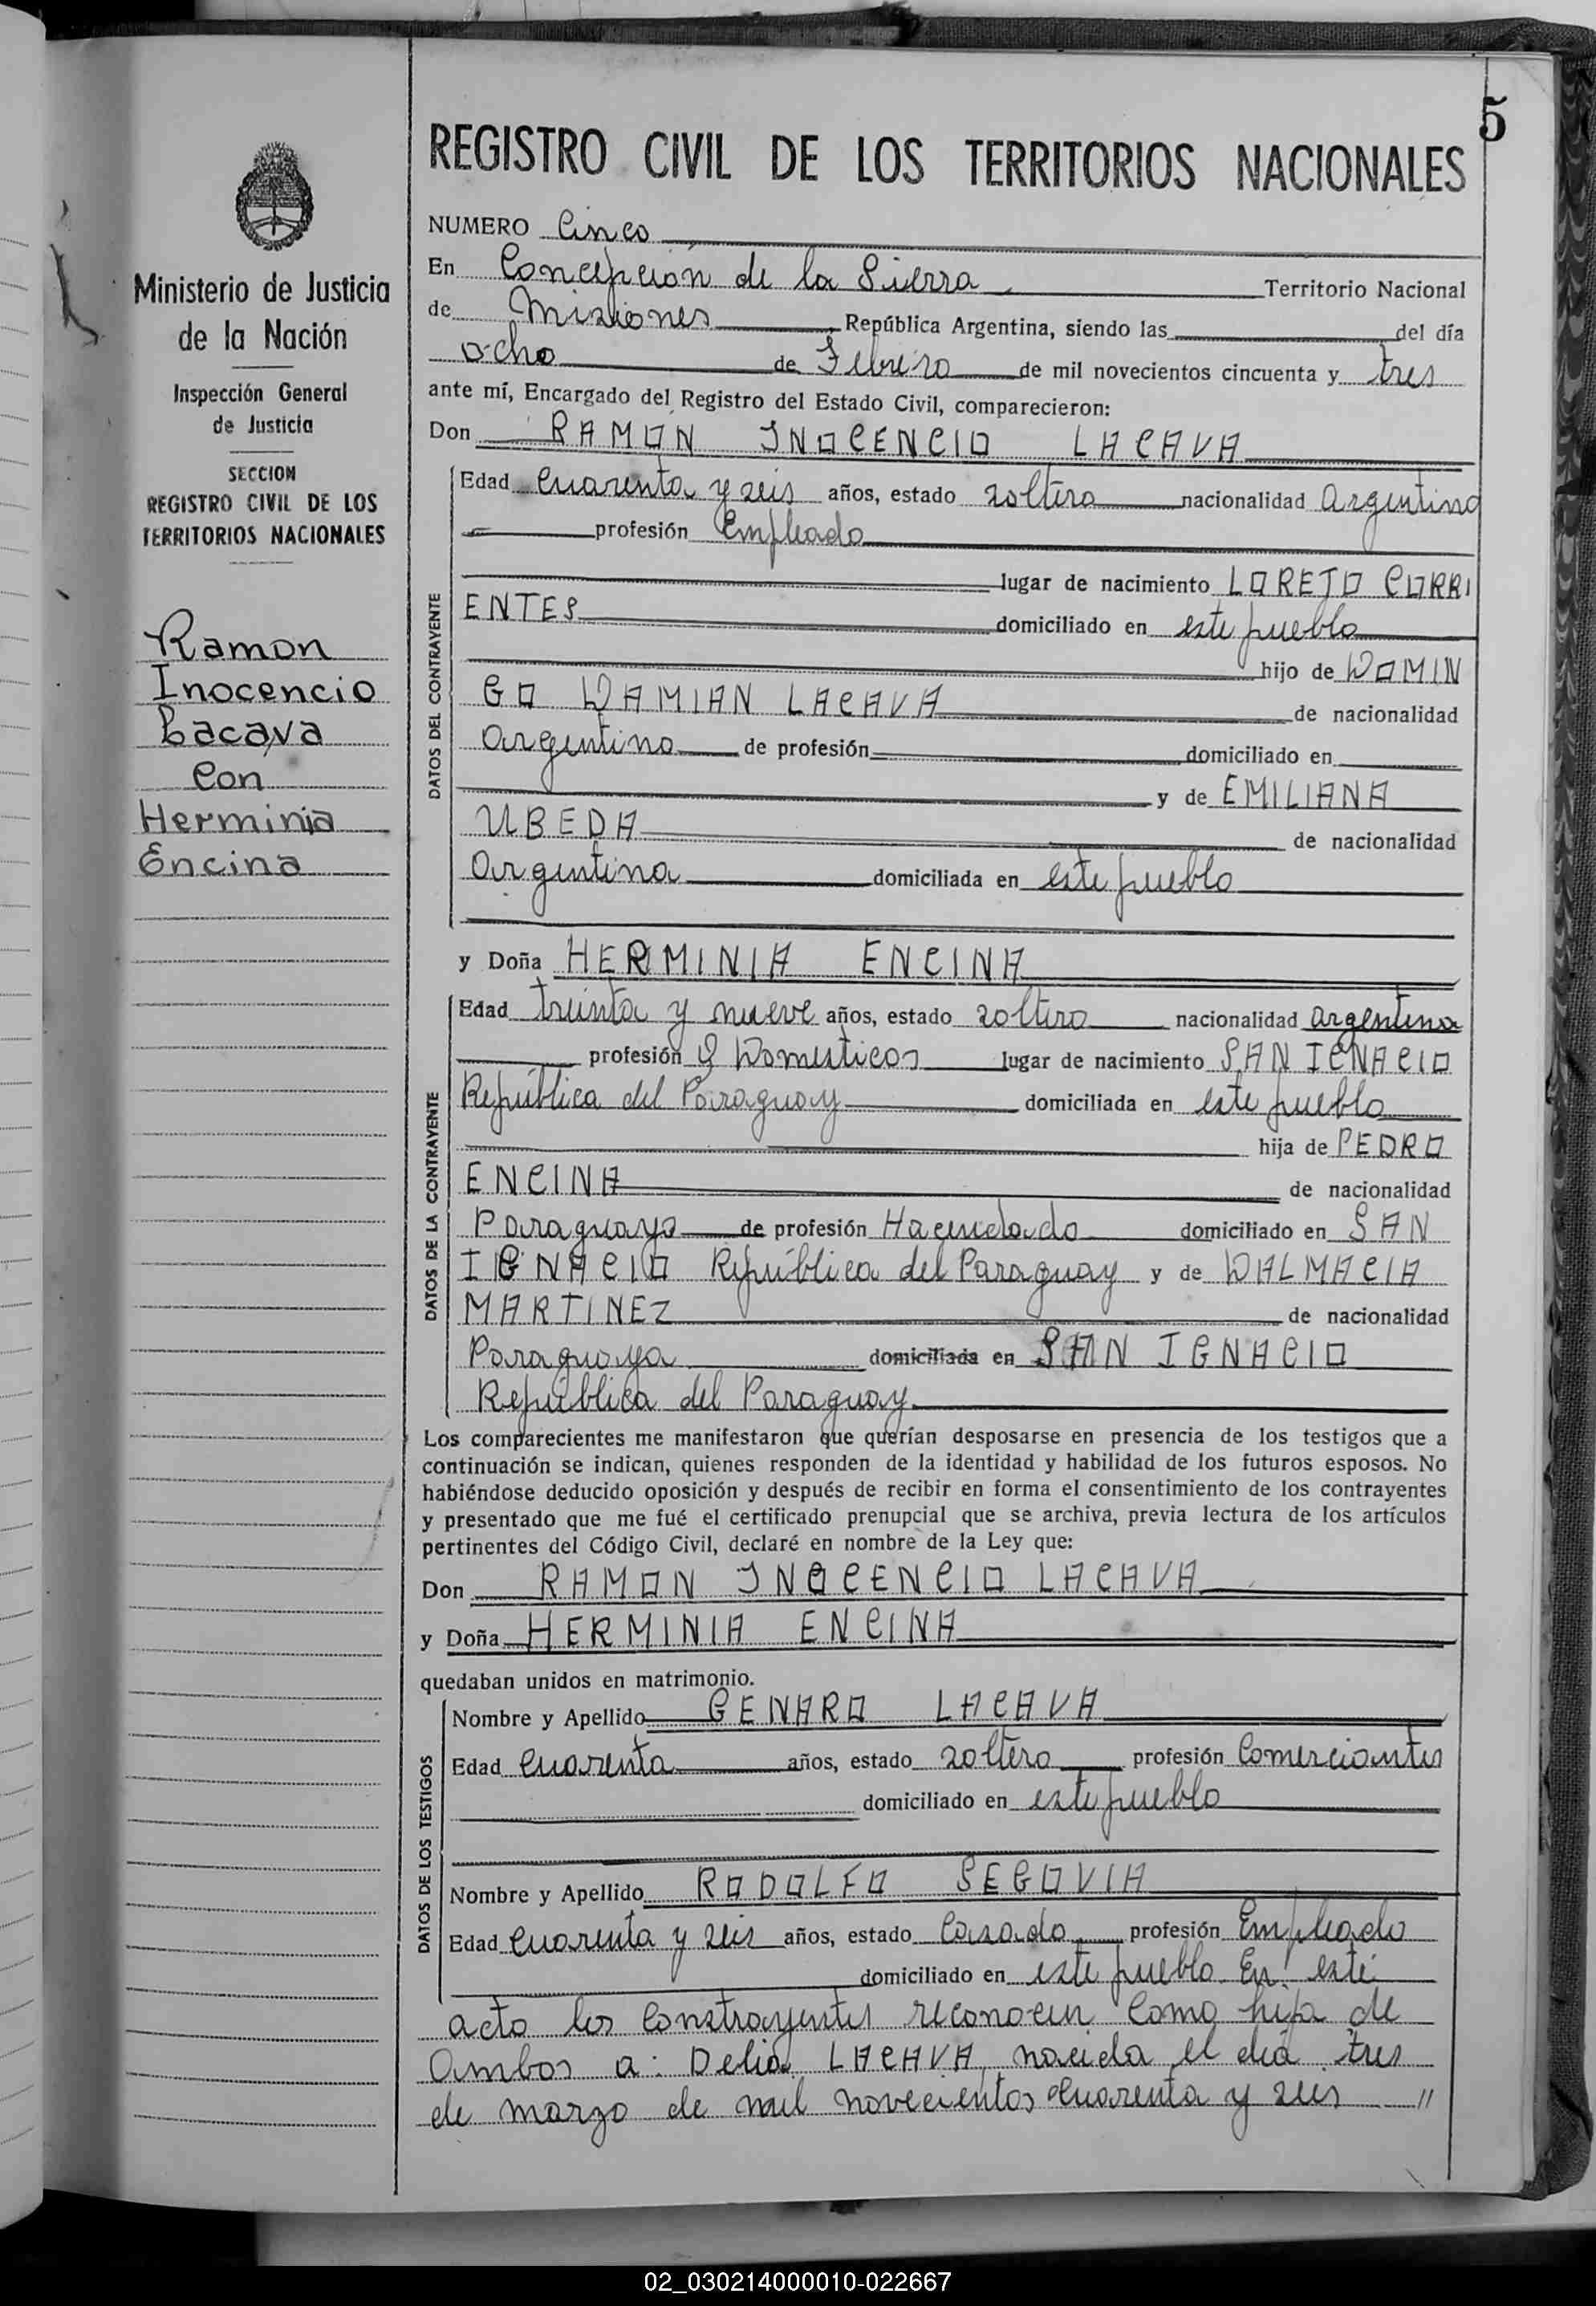 5
REGISTRO CIVIL DE LOS TERRITORIOS NACIONALES
Ministerio de Justicia
de la Nación
Inspección General
de Justicia
SECCION
REGISTRO CIVIL DE LOS
TERRITORIOS NACIONALES
Ramon
Inocencio
Lacava
Con
Herminia
Encina
NUMERO Cinco
En Concepción de la Sierra Territorio Nacional
de Misiones, República Argentina, siendo las del día
ocho de Febrero de mil novecientos cincuenta y tres
ante mí, Encargado del Registro del Estado Civil, comparecieron:
Don RAMÓN INOCENCIO LACAVA
DATOS DEL CONTRAYENTE
Edad Cuarenta y seis años, estado soltero nacionalidad argentino
profesión Empleado
lugar de nacimiento LORETO CORRI
ENTES domiciliado en este pueblo
hijo de DOMIN
GO DAMIAN LACAVA de nacionalidad
argentino de profesión domiciliado en
y de EMILIANA
UBEDA de nacionalidad
argentina domiciliada en este pueblo
y Doña HERMINIA ENCINA
DATOS DE LA CONTRAYENTE
Edad treinta y nueve años, estado soltera nacionalidad argentina
profesión Q Domesticos lugar de nacimiento SAN IGNACIO
República del Paraguay domiciliada en este pueblo
hija de PEDRO
ENCINA de nacionalidad
Paraguayo de profesión Hacendado domiciliado en SAN
IGNACIO República del Paraguay y de DALMACIA
MARTINEZ de nacionalidad
Paraguaya domiciliada en SAN IGNACIO
República del Paraguay
Los comparecientes me manifestaron que querían desposarse en presencia de los testigos que a
continuación se indican, quienes responden de la identidad y habilidad de los futuros esposos. No
habiéndose deducido oposición y después de recibir en forma el consentimiento de los contrayentes
y presentado que me fué el certificado prenupcial que se archiva, previa lectura de los artículos
pertinentes del Código Civil, declaré en nombre de la Ley que:
Don RAMON INOCENCIO LACAVA
y Doña HERMINIA ENCINA
quedaban unidos en matrimonio.
DATOS DE LOS TESTIGOS
Nombre y Apellido GENARO LACAVA
Edad Cuarenta años, estado soltero profesión Comerciantes
domiciliado en este pueblo
Nombre y Apellido RODOLFO SEGOVIA
Edad Cuarenta y seis años, estado Casado profesión Empleado
domiciliado en este pueblo. En este
acto los Constrayentes reconocen como hija de
Ambos a: Delia LACAVA, nacida el dia tres
de marzo de mil novecientos cuarenta y seis "
02_030214000010-022667